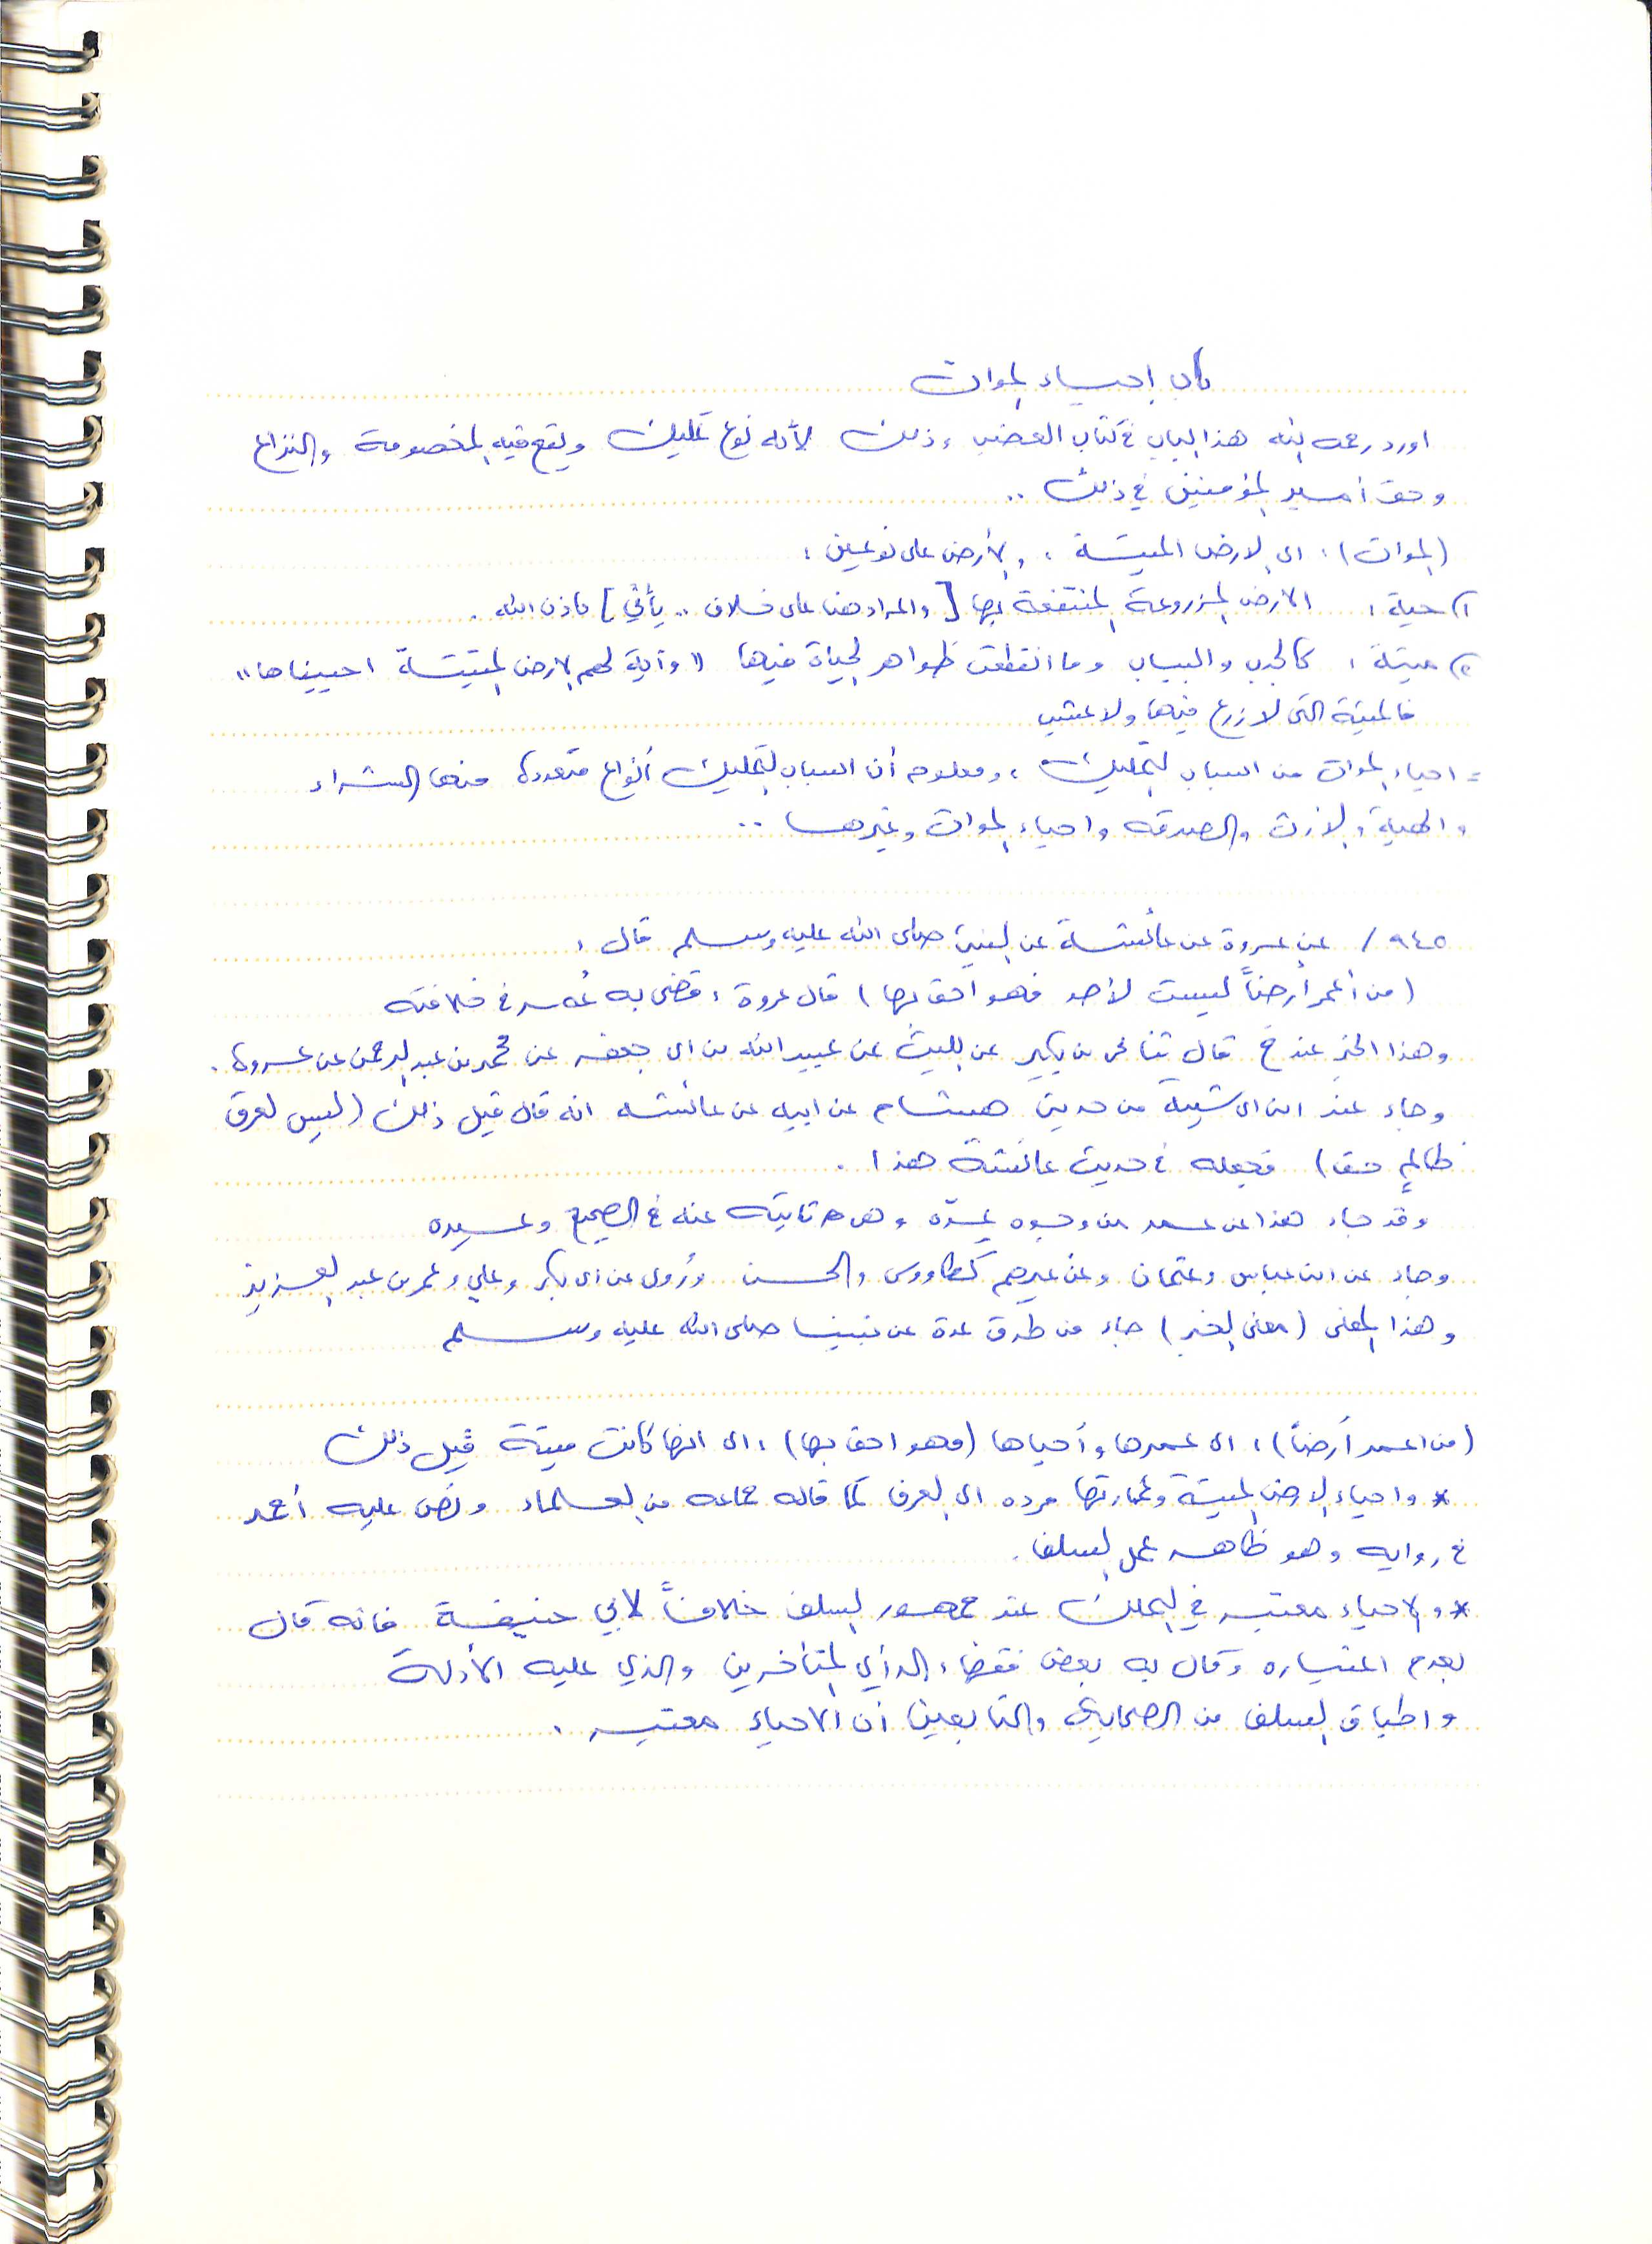 باب إحياء الموات
اورد رحمه الله هذا الباب في كتاب الغصب وذلك لأنه نوع تمليك ويقع فيه الخصومة والنزاع
وحق أمير المؤمنين في ذلك ..
(الموات): اي الارض الميتة ، والأرض على نوعين :
١) حية : الارض المزروعة المنتفعة بها [والمراد هنا على خلاف .. يأتي] باذن الله .
٢) ميتة : كالجدب واليباب وما انقطعت ظواهر الحياة فيها "وآية لهم الارض الميتة احييناها"
فالميتة التي لا زرع فيها ولا عشب
= احياء الموات من اسباب التمليك ، ومعلوم أن اسباب التمليك أنواع متعددة منها الشراء
والهبة والارث والصدقه واحياء الموات وغيرها ..
٩٤٥ / عن عروة عن عائشة عن النبي صلى الله عليه وسلم قال :
(من أعمر أرضاً ليست لأحد فهو احق بها) قال عروة : قضى به عُمر في خلافته
وهذا الخبر عند خ قال ثنا يحي بن بكير عن الليث عن عبيد الله بن ابي جعفر عن محمد بن عبد الرحمن عن عروة .
وجاء عند ابن ابي شيبة من حديث هشام عن ابيه عن عائشه انه قال قبل ذلك (ليس لعرق
ظالمٍ حق) فجعله في حديث عائشة هذا .
وقد جاء هذا عن عمر من وجوه عدّة وهو ثابت عنه في الصحيح وغيره
وجاء عن ابن عباس وعثمان وعن غيرهم كطاووس والحسن ورُوي عن ابي بكر وعلي وعمر بن عبد العزيز
وهذا المعنى (معنى الخبر) جاء من طرق عدة عن نبينا صلى الله عليه وسلم
(من اعمر أرضاً) : اي عمرها وأحياها (فهو احق بها) : اي انها كانت ميتة قبل ذلك
* واحياء الارض الميتة وعمارتها مرده الى العرف كما قاله جماعه من العلماء ونص عليه أحمد
في روايه وهو ظاهر عمل السلف .
* والاحياء معتبر في التملك عند جمهور السلف خلافاً لأبي حنيفة فانه قال
بعدم اعتباره وقال به بعض فقهاء الرأي المتأخرين والذي عليه الأدلة
واطباق السلف من الصحابة والتابعين أن الاحياء معتبر .